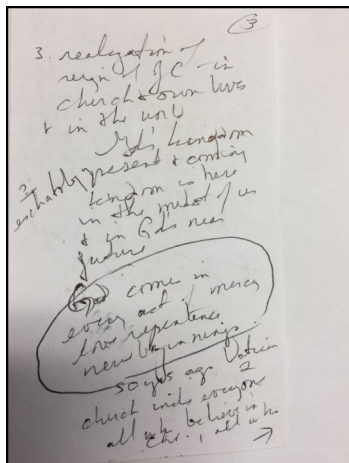 3
3. realization of
reign of JC - in
church & own lives
& in the world
God's kingdom
present & coming
kingdom is here
in the midst of us
& in Gods near
future
God comes in
every act of mercy
love repentance
new beginnings.
50 yrs ago Vatican
2
church incls everyone
all wh believe in
Chr. , all who